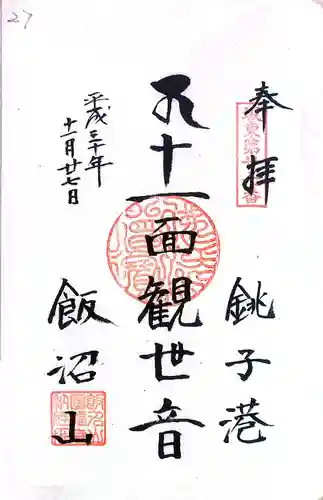 27
奉拝
銚子港
十一面観世音
平成三十年
十一月廿七日
飯沼山